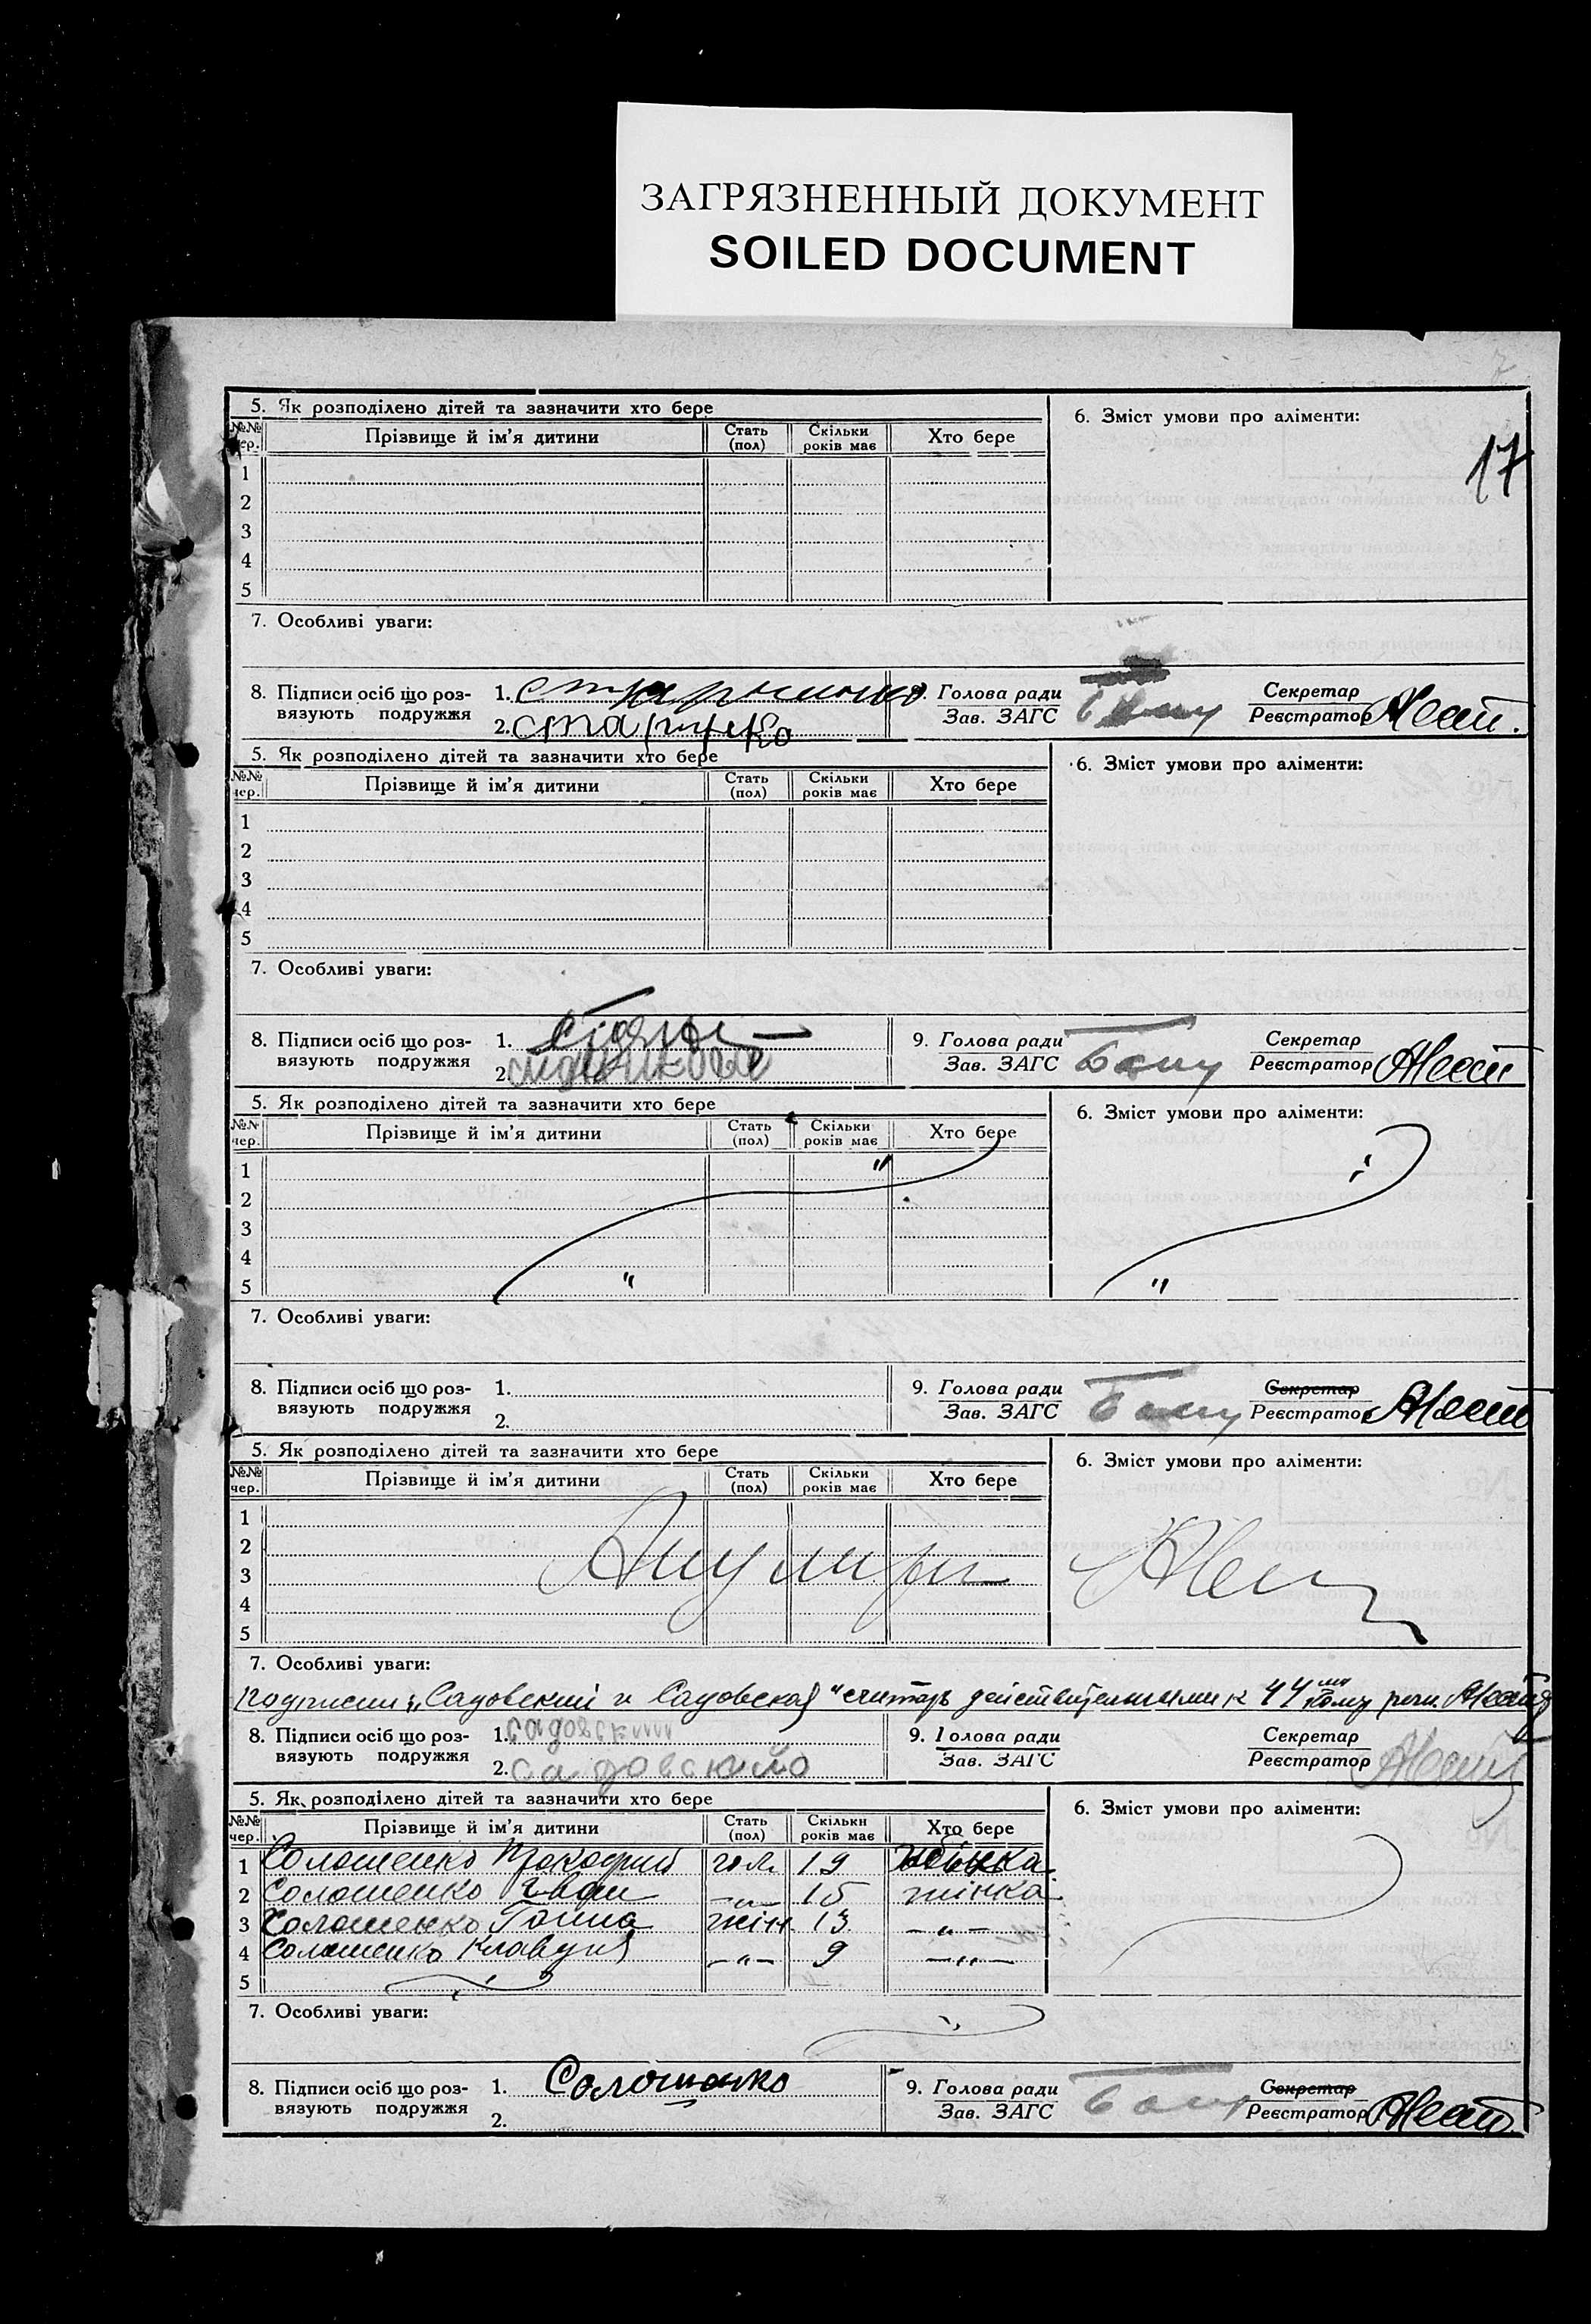 ЗАГРЯЗНЕННЫЙ ДОКУМЕНТ
SOILED DOCUMENT
7
17
5. Як розподілено дітей та зазначити хто бере
6. Зміст умови про аліменти:
№№ чер. Прізвище й ім'я дитини Стать (пол) Скільки років має Хто бере
1
2
3
4
5
7. Особливі уваги:
8. Підписи осіб що роз- 1. 9. Голова ради Секретар
вязують подружжя 2. Зав. ЗАГС Реєстратор
5. Як розподілено дітей та зазначити хто бере
6. Зміст умови про аліменти:
№№ чер. Прізвище й ім'я дитини Стать (пол) Скільки років має Хто бере
1
2
3
4
5
7. Особливі уваги:
8. Підписи осіб що роз- 1. 9. Голова ради Секретар
вязують подружжя 2. Зав. ЗАГС Реєстратор
5. Як розподілено дітей та зазначити хто бере
6. Зміст умови про аліменти:
№№ чер. Прізвище й ім'я дитини Стать (пол) Скільки років має Хто бере
1 "
2
3
4
5 " "
7. Особливі уваги:
8. Підписи осіб що роз- 1. 9. Голова ради Секретар
вязують подружжя 2. Зав. ЗАГС Реєстратор
5. Як розподілено дітей та зазначити хто бере
6. Зміст умови про аліменти:
№№ чер. Прізвище й ім'я дитини Стать (пол) Скільки років має Хто бере
1
2
3
4
5
7. Особливі уваги:
подписи „Садовский и Садовская" считать действительными к 44
8. Підписи осіб що роз- 1. 9. Голова ради Секретар
вязують подружжя 2. Зав. ЗАГС Реєстратор
5. Як розподілено дітей та зазначити хто бере
6. Зміст умови про аліменти:
№№ чер. Прізвище й ім'я дитини Стать (пол) Скільки років має Хто бере
1 Солошенко чол. 19
2 Солошенко Іван —„— 15 жінка
3 Солошенко Ганна жін. 13 —„—
4 Солошенко Клавдия —„— 9 —„—
5
7. Особливі уваги:
8. Підписи осіб що роз- 1. Солошенко 9. Голова ради Секретар
вязують подружжя 2. Зав. ЗАГС Реєстратор